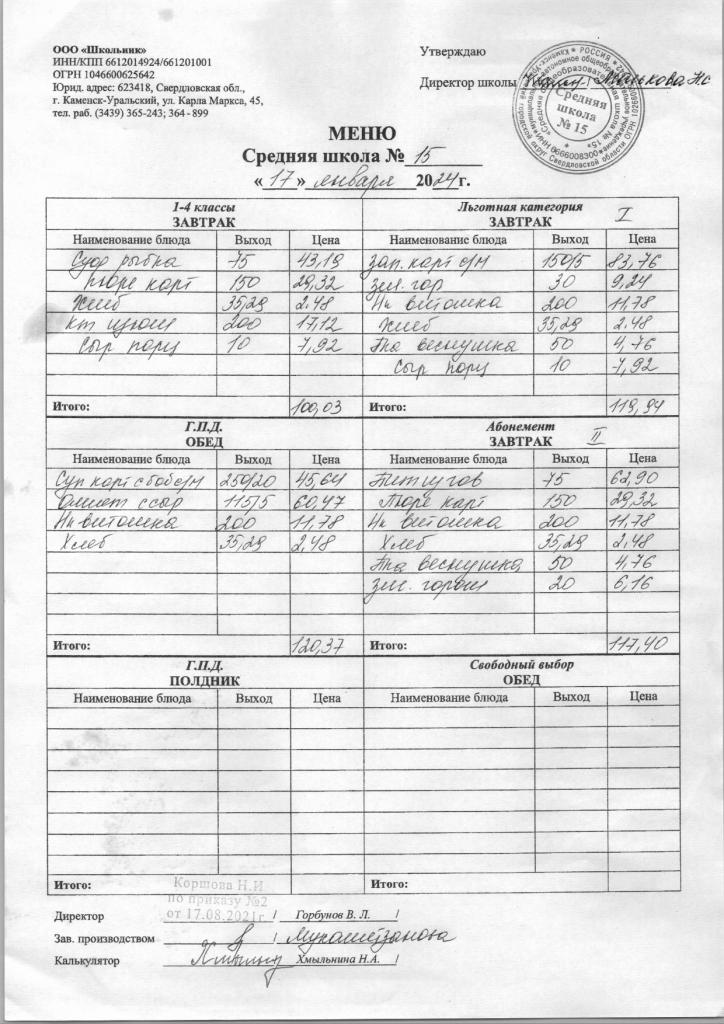 ООО «Школьник»
ИНН/КПП 6612014924/661201001
ОГРН 1046600625642
Юрид. адрес: 623418, Свердловская обл.,
г. Каменск-Уральский, ул. Карла Маркса, 45,
тел. раб. (3439) 365-243; 364 - 899
Утверждаю
Директор школы
Средняя школа № 15
МЕНЮ
Средняя школа № 15
« 17 » января 2024г.
1-4 классы
ЗАВТРАК
Наименование блюда Выход Цена
Суф рыбка 75 43,19
пюре карт 150 29,32
Хлеб 35,29 2.48
кт изюм 200 17,12
Сыр порц 10 7,92
Итого: 100,03
Льготная категория I
ЗАВТРАК
Наименование блюда Выход Цена
зап. карт с/м 150/5 83,76
зел. гор 30 9,24
Нк витошка 200 11,78
Хлеб 35,29 2.48
Пка веснушка 50 4,76
Сыр порц 10 7,92
Итого: 119,94
Г.П.Д.
ОБЕД
Наименование блюда Выход Цена
Суп карт с боб с/м 250/20 45,64
Омлет с сыр 115/5 60,47
Нк витошка 200 11,78
Хлеб 35,29 2,48
Итого: 120,37
Абонемент II
ЗАВТРАК
Наименование блюда Выход Цена
75 62,90
Пюре карт 150 29,32
Нк витошка 200 11,78
Хлеб 35,29 2,48
Пка веснушка 50 4,76
зел. горош 20 6,16
Итого: 117,40
Г.П.Д.
ПОЛДНИК
Наименование блюда Выход Цена
Итого:
Свободный выбор
ОБЕД
Наименование блюда Выход Цена
Итого:
Коршова Н.И
по приказу №2
от 17.08.2021г
Директор / Горбунов В. Л. /
Зав. производством /
Калькулятор Хмыльнина Н.А. /